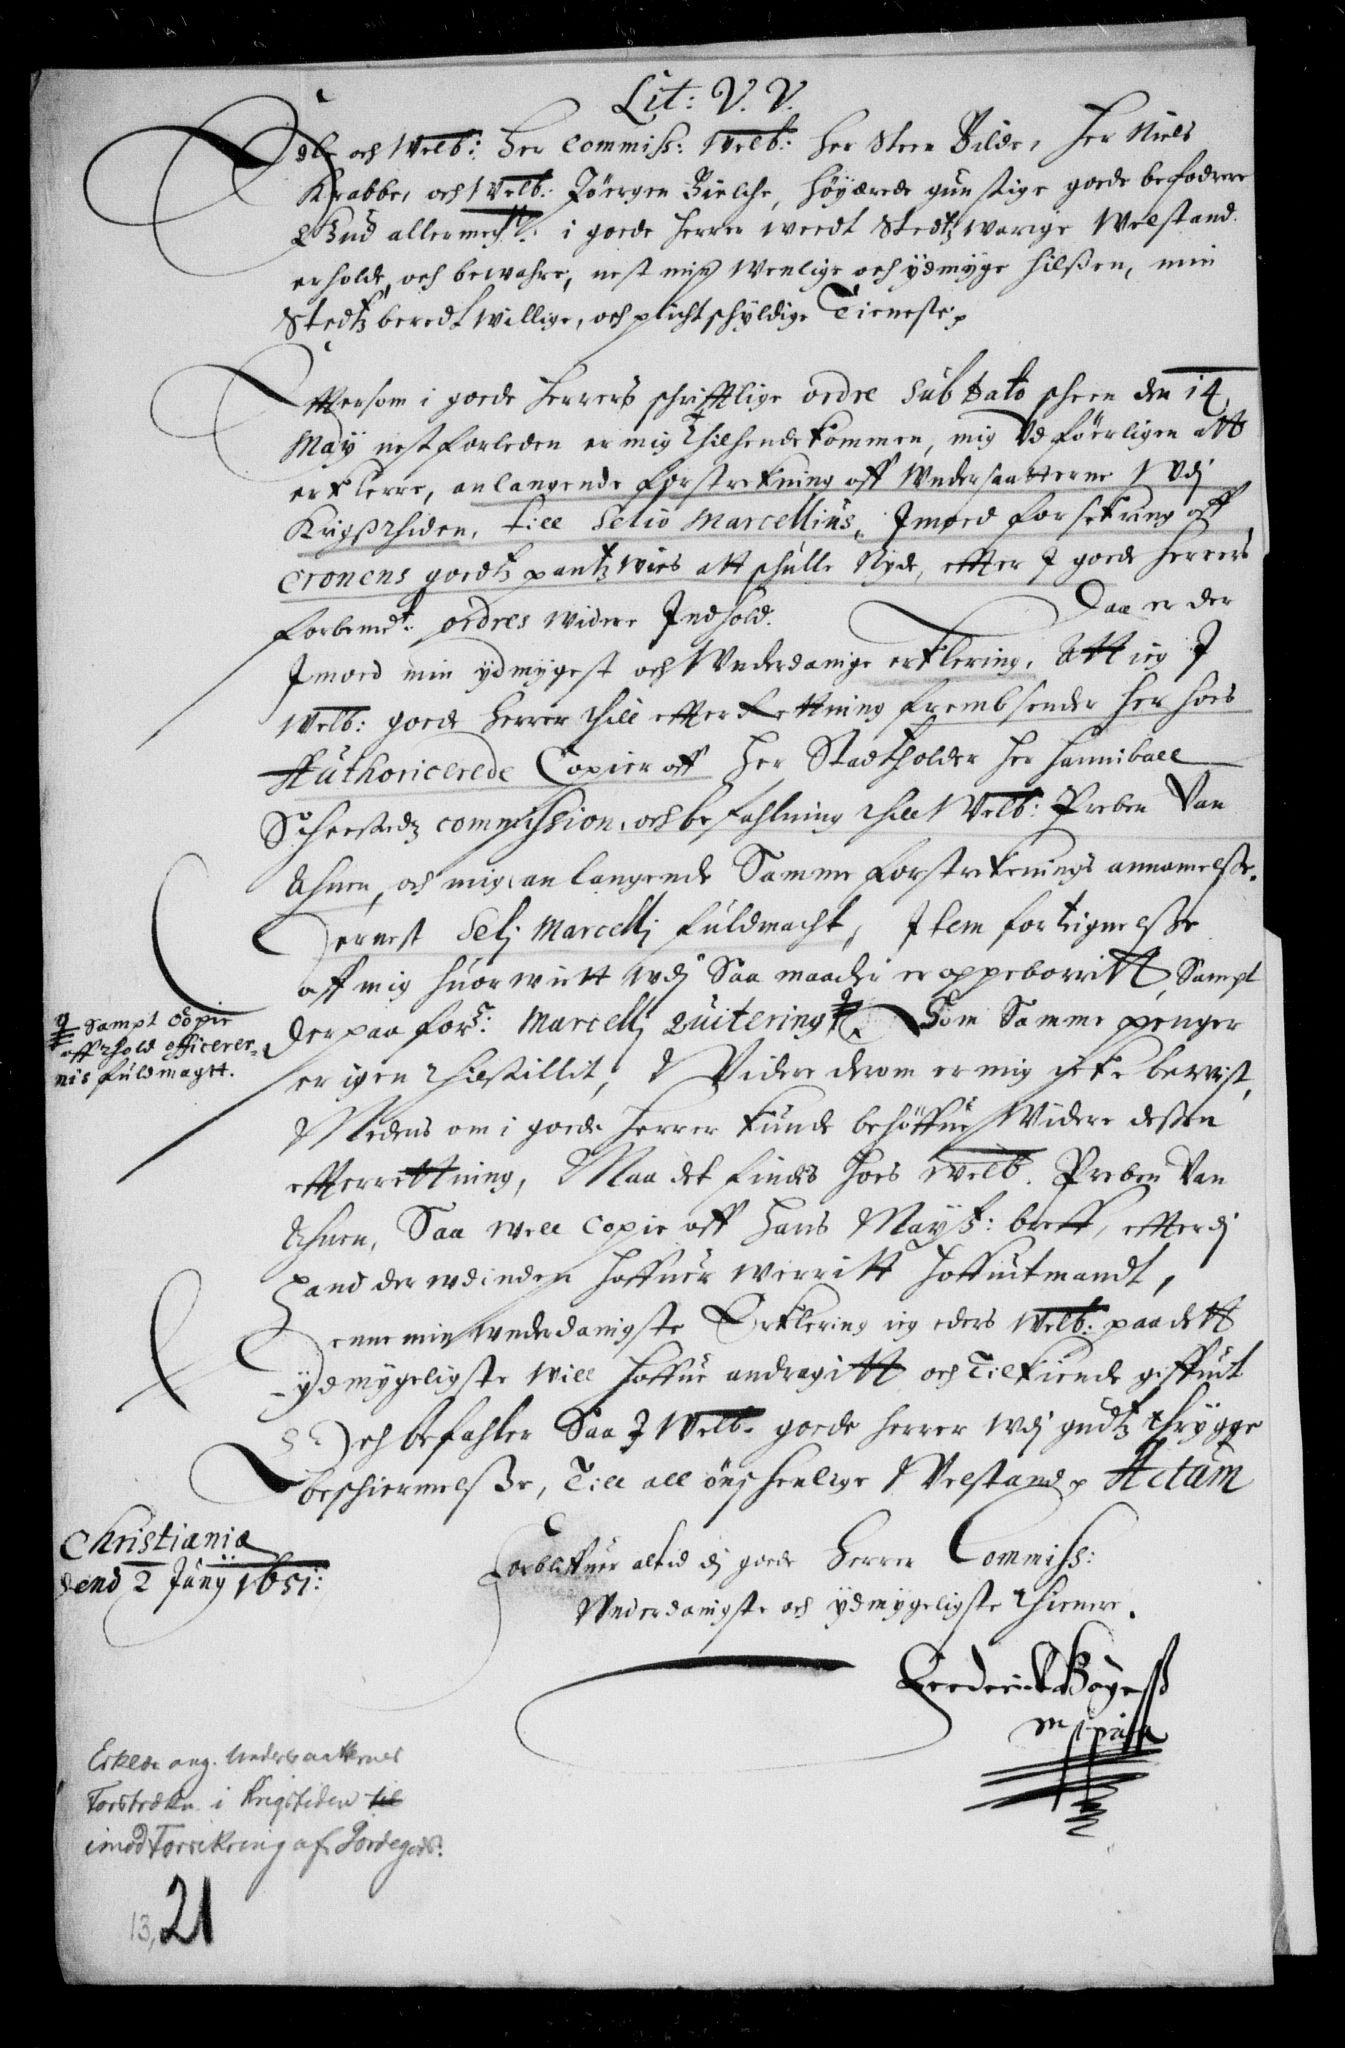 Lit: V. V.
Edle och Welb: Her Commiss: Welb: Her Steen Bilde, Her Niels
Krabbe, och Welb: Jöergen Bielche, höyærede gunstige goede befodrere
Gud allermechst: i goede Herrer weedt Stedtz warige Welstand
erholde, och bewahre, nest min Wenlige och ydmyge hilßen, min
Stedtz beredt willige, och plichtschyldige Tieneste,
Effttersom i goede Herrers schrifftlige ordre Sub Dato scheen den 14
May nestforleden er mig thilhendekommen, mig Vdföerligen att
erklerre, anlangende forstrekning off Wndersaatterne Wdj
Krigßthiden, till Selio Marcellius, Jmoed forsekring off
Cronens goedtz pantzwies att schulle Nyde, effter J goede herrers
forbemdt: ordres widere Jndhold. Daa er der
Jmoed min ydmygest och Wnderdanige erklering, Att ieg J
Welb: goede Herrer thill effterRettning frembsender her hoes
Authoricerede Copier off Her Stadtholder Her Hanniball
Sehestedtz commission, och befahlning thill Welb: Preben Van
Ahnen, och mig, anlangende Samme forstrekenings annamelsse.
Dernest Selj Marcellj fuldmacht, Jtem fortignelsse
off mig huor witt wdj Saa maader er oppeborritt, Sampt
derpaa forse: Marcellj quitering # Som Samme penger
# Sampt Copie
off thold officerer-
nis fuldmagtt.
er igen thilstillit, Videre derom er mig icke bewist,
Medens om i goede Herrer kunde behöffue Widere dessen
efftterrettning, Maa det findes hoes Welb. Preben Van
Ahnen, Saa well Copie off Hans Mayt: breff, effterdj
Hand der wdinden haffuer werritt hoffuitmandt,
Denne min wnderdanigste Erklering ieg eders Welb: paa dett
ydmygeligste will haffue andragitt och Tilkiende giffuit
Och befahler Saa J Welb. goede Herrer wdj gudtz thrygge
beschiermelsse, Till all önschenlige Welstand, Actum
Christiania
dend 2 Juny 1651:
Forbliffuer altid dj goede Herrer Commiss:
Wnderdanigste och ydmygeligste thienere.
Frederich Böyesß
mppria
Erklær. ang. Undersaatternes
Forstrækn. i Krigstiden til
imod Forsikring af Jordegods.
13, 21